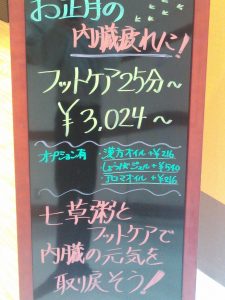 お正月の
内臓疲れに!
フットケア25分〜
¥3,024〜
オプション有
・漢方オイル+¥216
・しょうがジェル+¥540
・アロマオイル+¥216
七草粥と
フットケアで
内臓の元気を
取り戻そう!